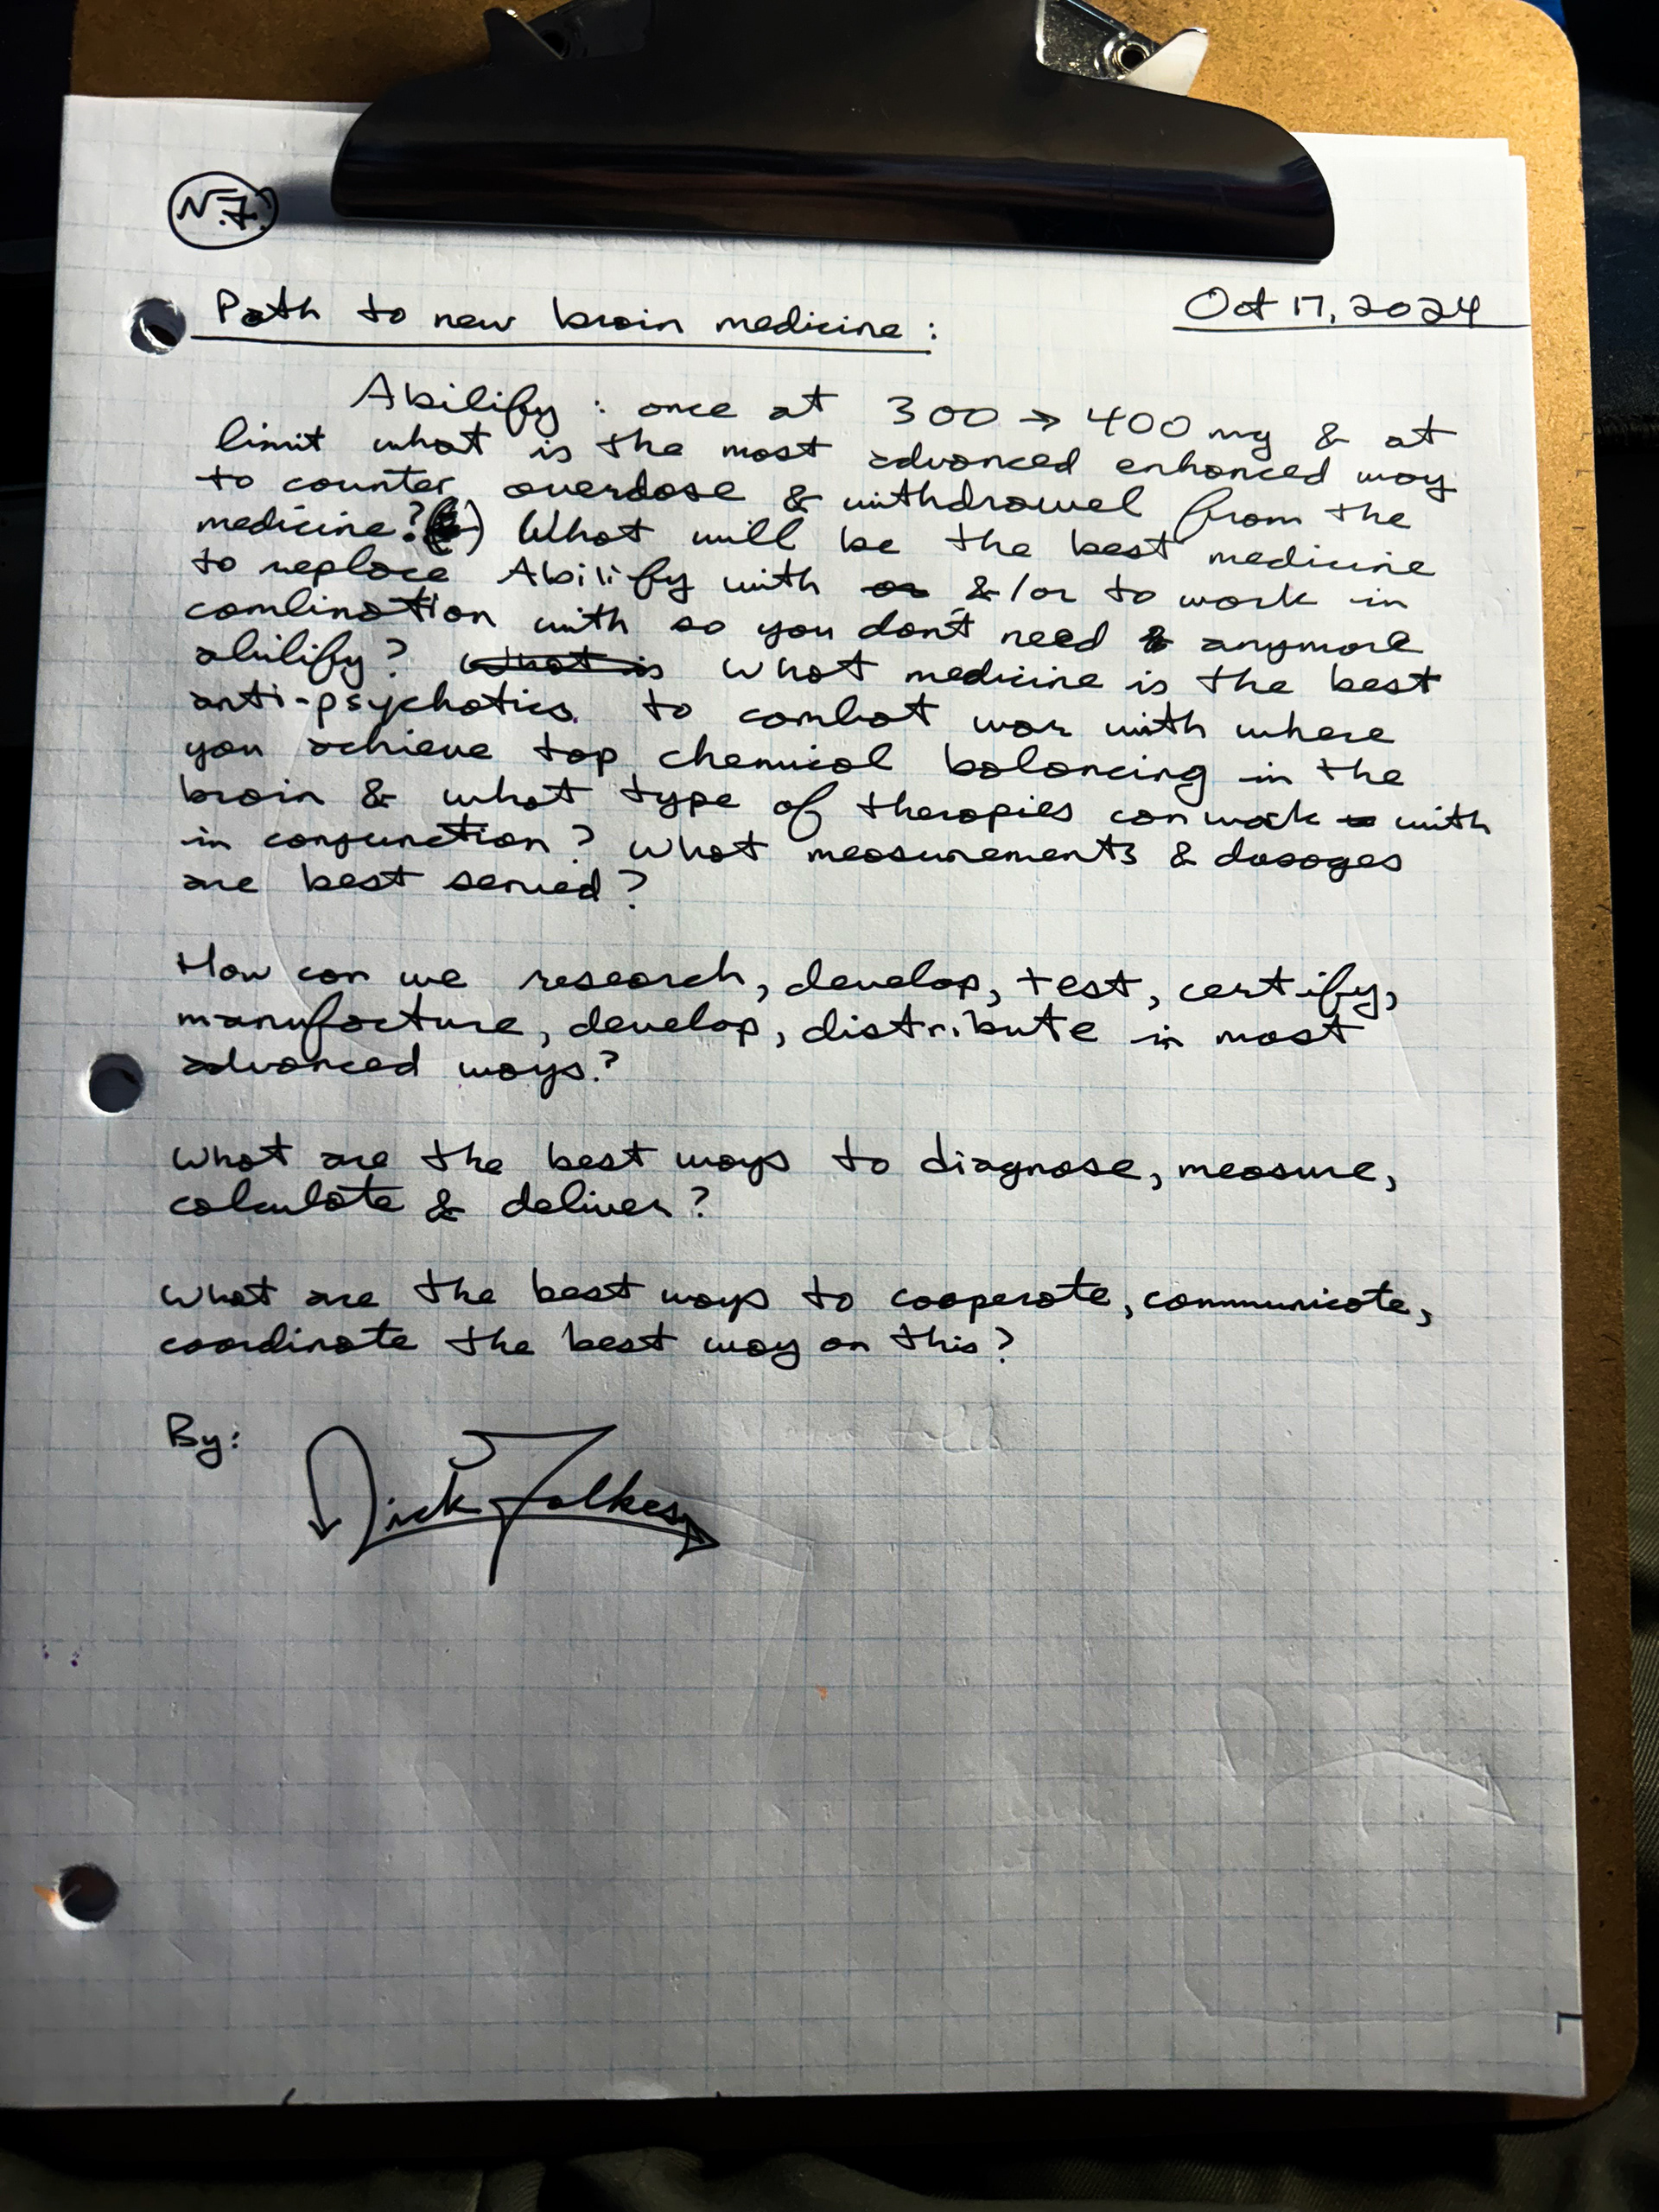 N.F.
Path to new brain medicine:
Oct 17, 2024
Abilify: once at 300 → 400 mg & at
limit what is the most advanced enhanced way
to counter overdose & withdrawel from the
medicine? What will be the best medicine
to replace Abilify with or &/or to work in
combination with so you don't need anymore
abilify? What is What medicine is the best
anti-psychotics to combat war with where
you achieve top chemical balancing in the
brain & what type of therapies can work with
in conjunction? What measurements & dosages
are best served?
How can we research, develop, test, certify,
manufacture, develop, distribute in most
advanced ways?
What are the best ways to diagnose, measure,
calculate & deliver?
What are the best ways to cooperate, communicate,
coordinate the best way on this?
By: